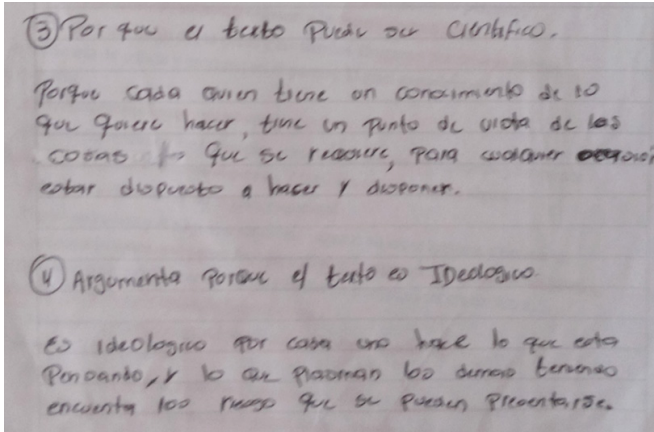 ③ Por que el texto Puede ser Cientifico.
Porque cada quien tiene un conocimiento de lo
que quiere hacer, tine un punto de vista de las
cosas que se requiere, para cualquier
estar dispuesto a hacer y disponer.
④ Argumenta Porque el texto es IDeologico.
Es ideologico por cada uno hace lo que esta
Pensando, y lo que Plasman los demas teniendo
encuenta los riesgo que se pueden Presentarse.